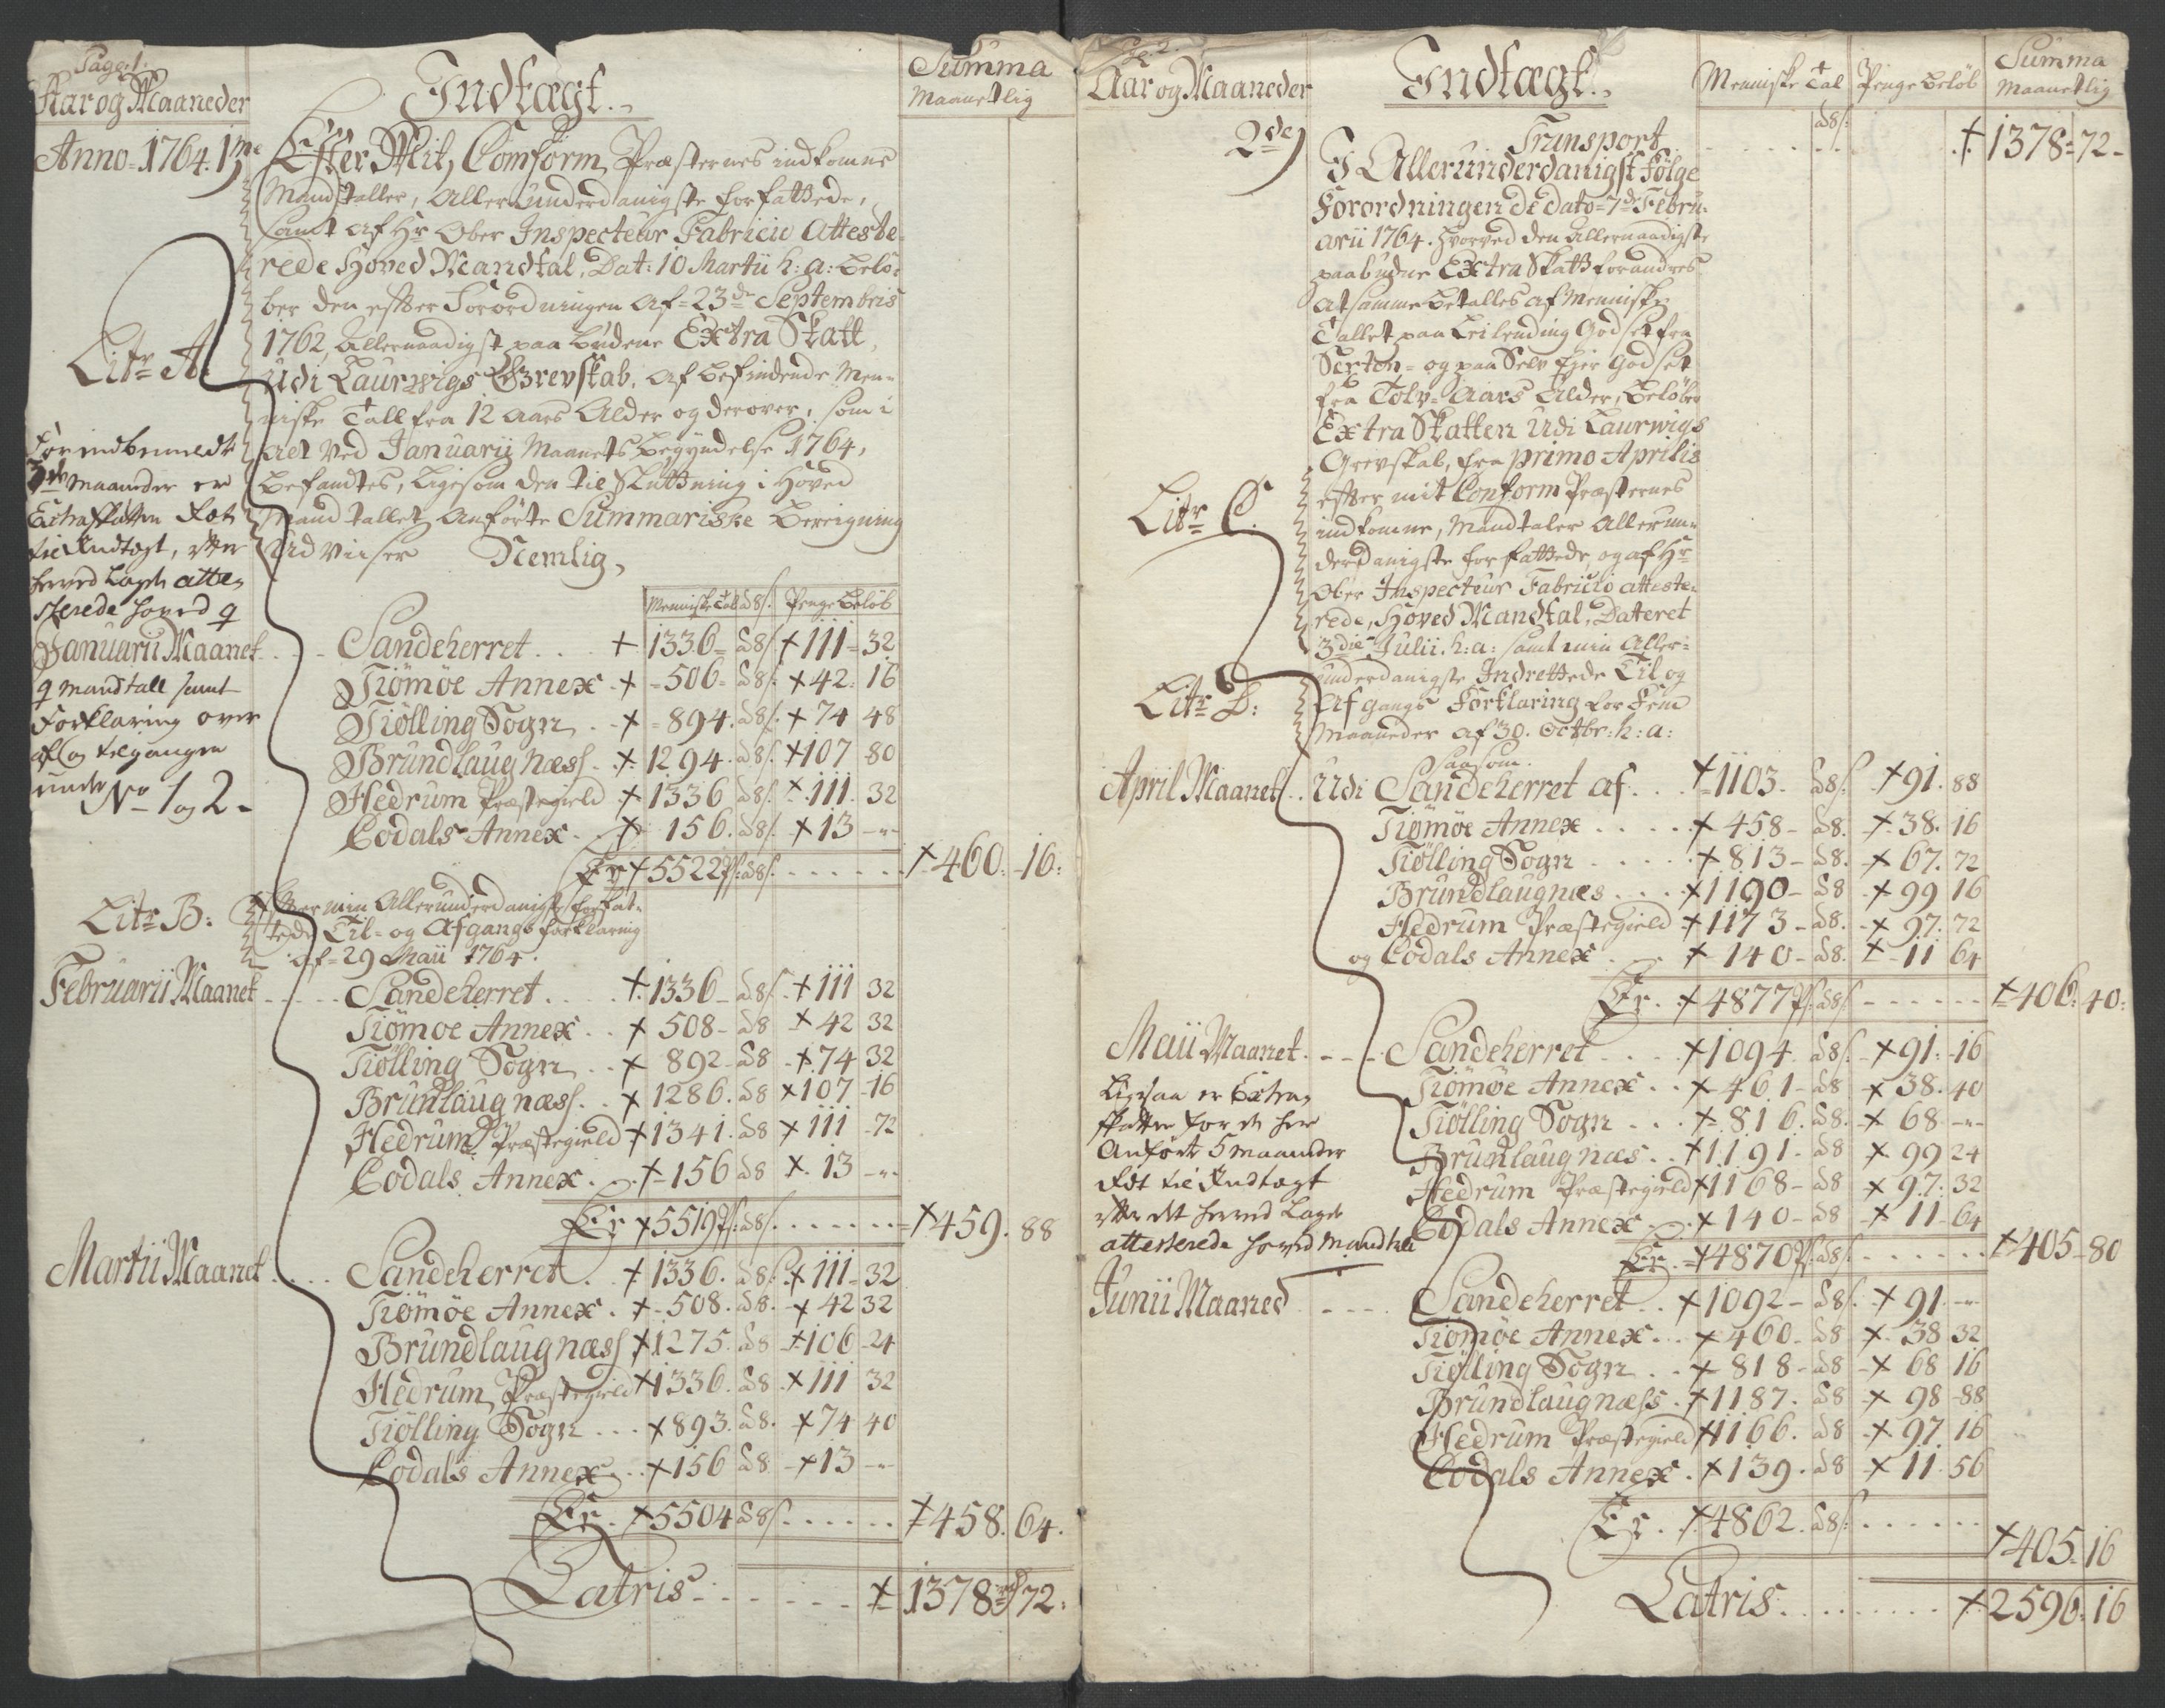 Pag: 1.
Aar og Maaneder
Indtægt.
Summa
Maanetlig
Anno 1764. 1me
Efter Mit, Conform Præsternes indkomne
Mandtaller, Allerunderdanigste forfattede,
samt af Hr Ober Inspecteur Fabricio Atteste-
rede Hoved Mandtal, Dat: 10 Martii h: a: belø-
ber den efter Forordningen af 23de Septembris
1762, Allernaadigst paa budene Extra Skatt,
Udi Laurwigs Grevskab, af befindende Men-
niske Tall fra 12 Aars Alder og derover, som i
det ved Januarii Maanets Begyndelse 1764,
befandtes, ligesom den til Slutning i Hoved
Mandtallet Anførte Summariske Bereigning
Udviiser Nemlig,
Litr A:
For indbemeldte
3de Maaneder er
Extra Skatten Rett
til Indtægt, efter
herved Lagde atte-
sterede Hoved
Januarii Maanet
Mandtall samt
Forklaring over
af og tilgangen
under No 1 og 2
Menniske Tal à 8 s. Penge Beløb
Sandeherret . . . 1336 à 8 s. 111 32
Tiømøe Annex . 506 à 8 s. 42 16
Tiølling Sogn . . 894 à 8 s. 74 48
Brundlaugnæss . 1294 à 8 s. 107 80
Hedrum Præstegield 1336 à 8 s. 111 32
Codals Annex . . 156 à 8 s. 13 - -
Er 5522 à 8 s. . . . . . . 460 16
Litr B:
Efter min Allerunderdanigste forfat-
tede Til- og Afgangs forklaring
af 29 Maii 1764.
Februarii Maanet
Sandeherret . . . . 1336 à 8 s. 111 32
Tiømøe Annex . . 508 à 8 42 32
Tiølling Sogn . . 892 à 8 74 32
Brunlaugnæss . . 1286 à 8 107 16
Hedrum Præstegield 1341 à 8 111 72
Codals Annex . . 156 à 8 13 - -
Er 5519 à 8 s. . . . . . . 459 88
Martii Maanet
Sandeherret . . 1336 à 8 s. 111 32
Tiømøe Annex . 508 à 8 42 32
Brundlaugnæss 1275 à 8 106 24
Hedrum Præstegield 1336 à 8 111 32
Tiølling Sogn . . . 893 à 8 74 40
Codals Annex . . 156 à 8 13 - -
Er . 5504 à 8 s. . . . . . 458 64
Latris . . . . . . 1378 rd 72
Pag: 2.
Aar og Maaneder
Indtægt.
Menniske Tal
Penge Beløb
Summa
Maanetlig
à 8 s:
2de
Transport . . . . . . . 1378 72
I Allerunderdanigst Følge
Forordningen de dato 7de Febru-
arii 1764. hvorved den allernaadigste
paabudne Extra Skatt forandres
at samme betalles af Menniske
Tallet paa Leilending Godset fra
Sexten- og paa Selv Eier Godset
fra Tolv Aars Alder, beløber
Extra Skatten Udi Laurwigs
Grevskab, fra primo Aprilis
efter mit Conform Præsternes
indkomne, Mandtaler Allerun-
derdanigste forfattede, og af Hr
Ober Inspecteur Fabricio atteste-
rede, Hoved Mandtal, Datteret
3die Julii. h: a: samt min Aller-
underdanigste Indrettede Til og
Afgangs Forklaring for Fem
Maaneder af 30. Octbr: h: a:
Saasom.
Litr C.
Litr D:
April Maanet . .
Udi Sandeherret af . . . 1103 à 8 s. 91 88
Tiømøe Annex . . . . . 458 à 8. 38 16
Tiølling Sogn . . . . . 813 à 8. 67 72
Brundlaugnæs . . . . 1190 à 8 99 16
Hedrum Præstegield 1173 à 8. 97 72
og Codals Annex . . . 140 à 8. 11 64
Er . 4877 à 8 s. . . . . . . 406 40
Maii Maanet . . .
Ligesaa er Extra-
skatten for de her
Anførte 5 Maaneder
Ret til Indtægt
efter det herved Lagde
attesterede hoved Mandtall
Sandeherret . . . . 1094 à 8 s. 91 16
Tiømøe Annex . . 461 à 8 38 40
Tiølling Sogn . . . 816 à 8. 68 - -
Brunlaugnæs . . 1191 à 8 99 24
Hedrum Præstegield 1168 à 8 97 32
Codals Annex . . . 140 à 8 11 64
Er . 4870 à 8 s. . . . . . . 405 80
Junii Maaned . . . .
Sandeherret . . 1092 à 8 s. 91 - -
Tiømøe Annex . . . 460 à 8 38 32
Tiølling Sogn . . . 818 à 8 68 16
Brundlaugnæss . 1187 à 8 98 88
Hedrum Præstegield 1166 à 8 97 16
Codals Annex . 139 à 8 11 56
Er . 4862 à 8 s. . . . . . .
405 16
Latris . . . . . . . . . 2596 16